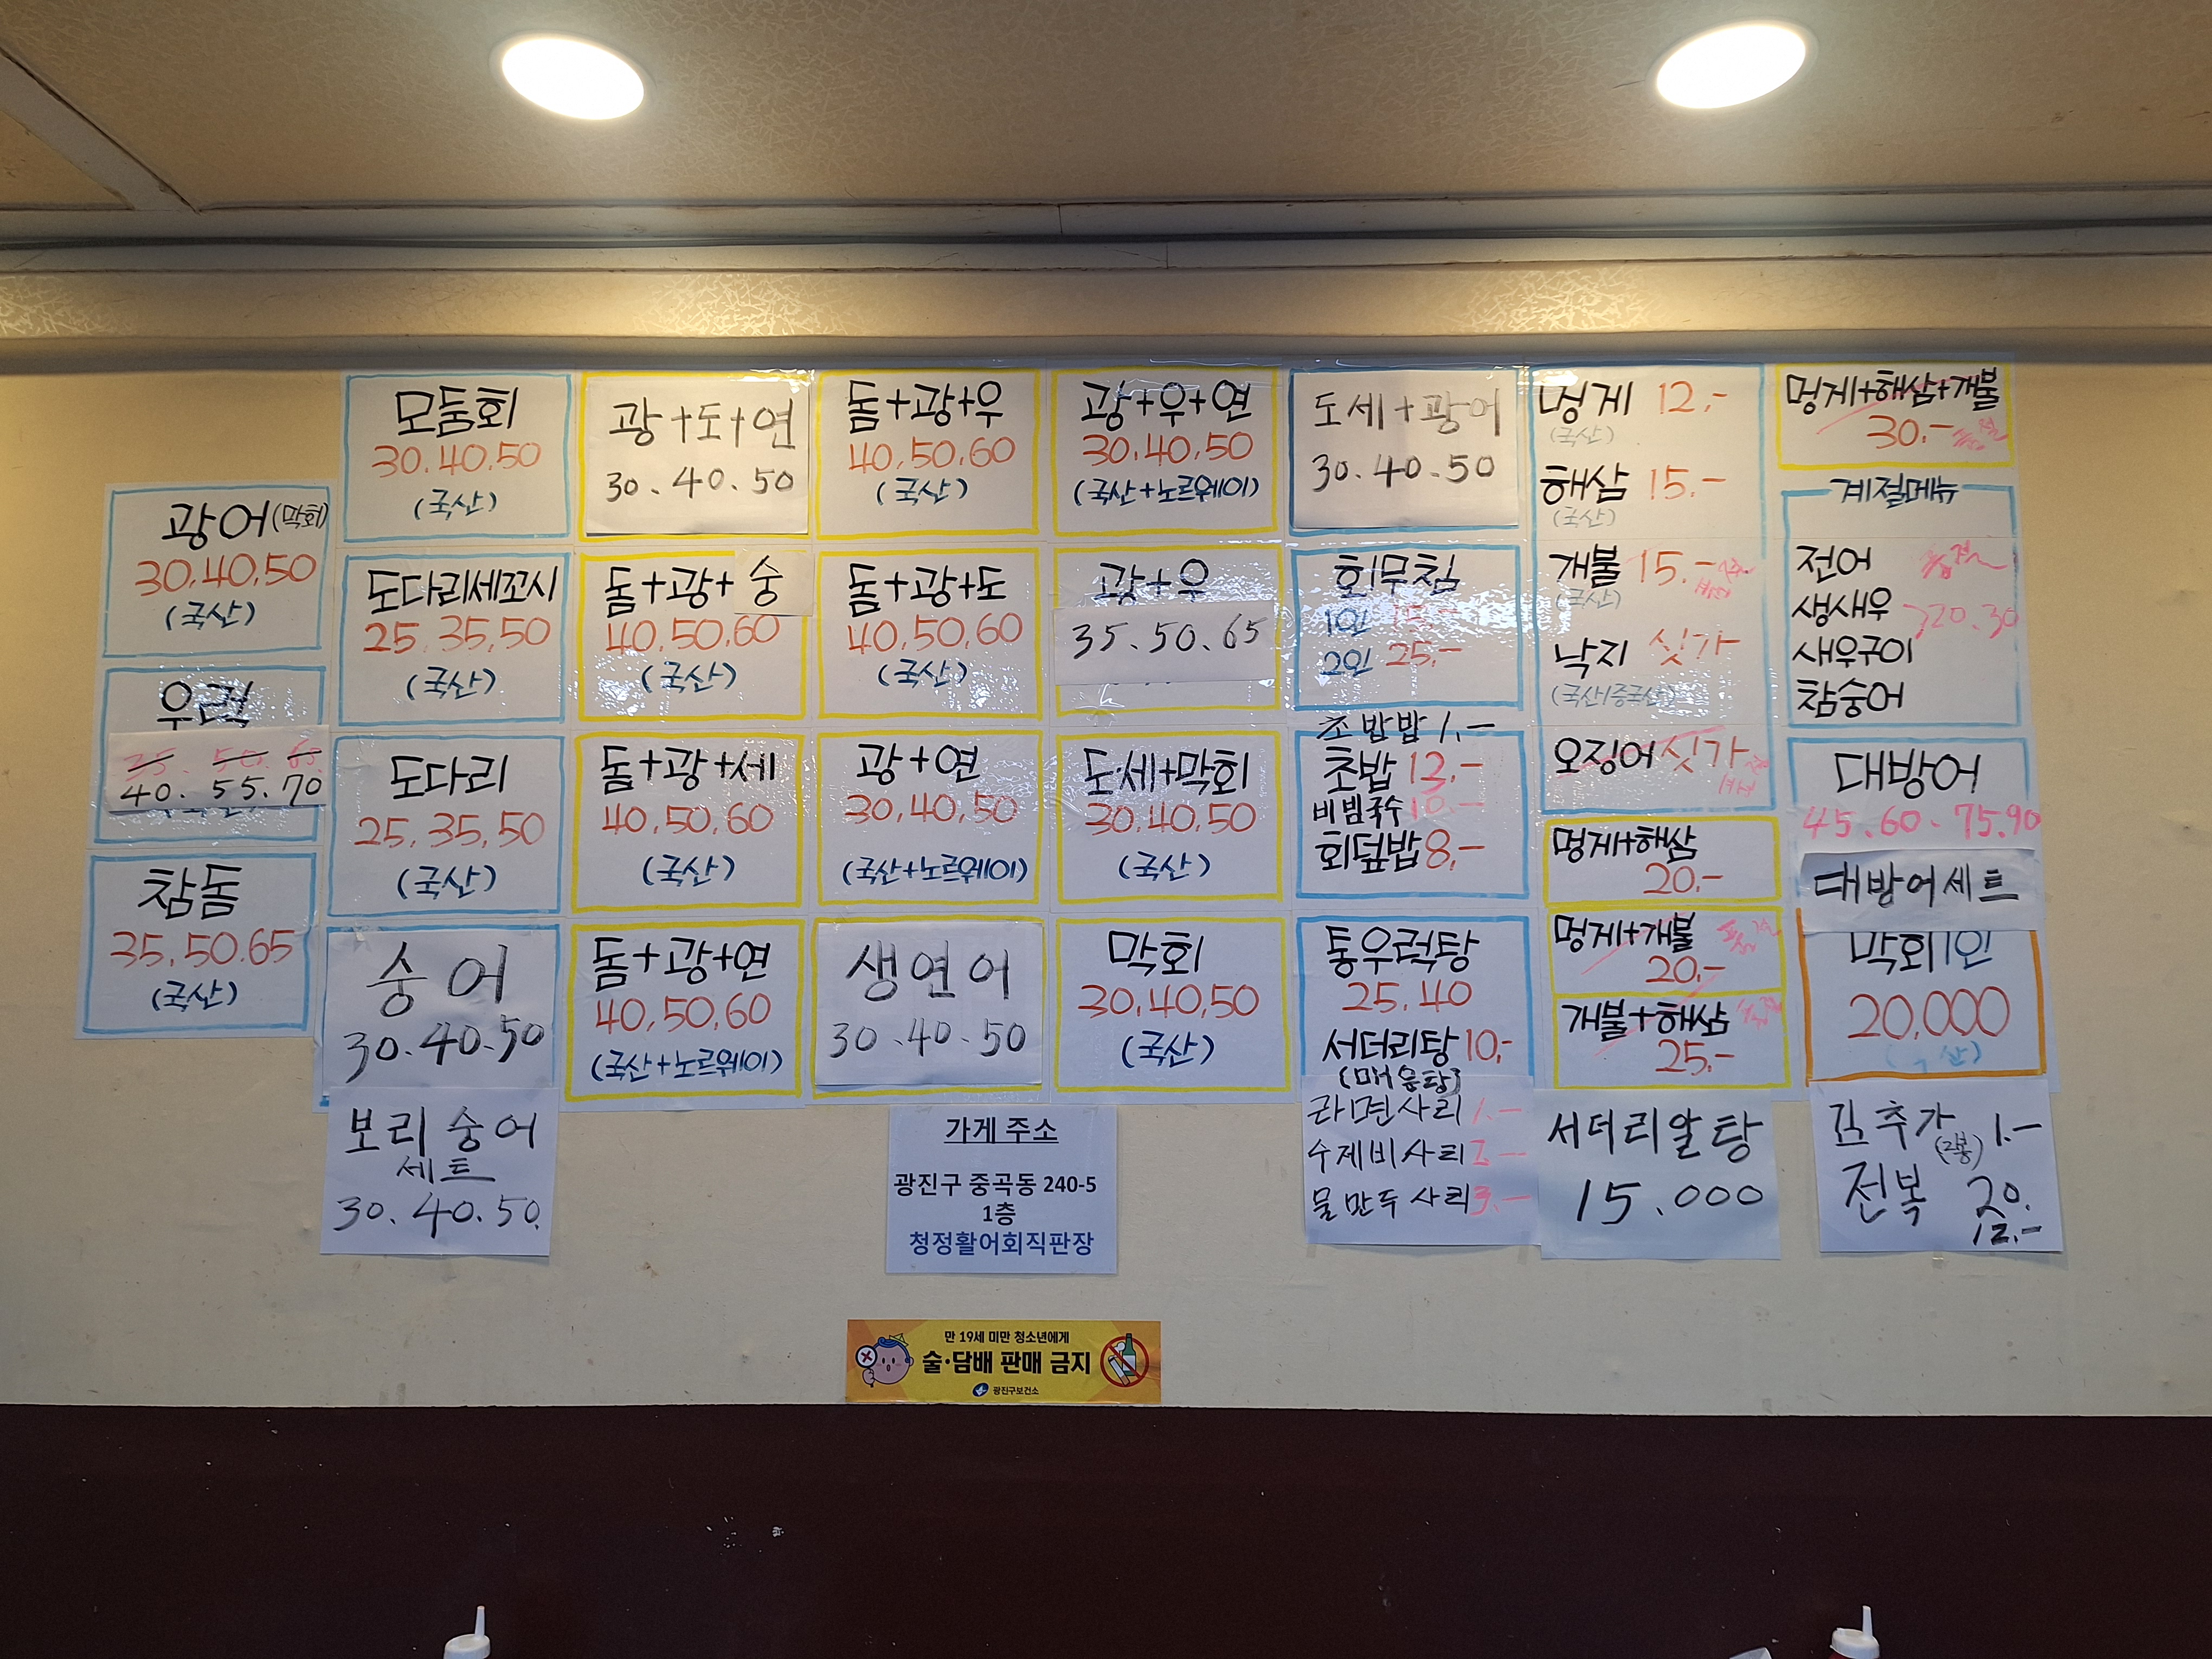 광어(막회)
30,40,50
(국산)
우럭
35. 50. 65
40. 55. 70
참돔
35,50.65
(국산)
모둠회
30.40.50
(국산)
도다리세꼬시
25,35,50
(국산)
도다리
25,35,50
(국산)
숭어
30.40.50
보리숭어
세트
30.40.50.
광+도+연
30.40.50
돔+광+숭
40,50,60
(국산)
돔+광+세
40,50,60
(국산)
돔+광+연
40,50,60
(국산+노르웨이)
돔+광+우
40,50,60
(국산)
돔+광+도
40,50,60
(국산)
광+연
30,40,50
(국산+노르웨이)
생연어
30.40.50
광+우+연
30.40,50
(국산+노르웨이)
광+우
35.50.65
도·세+막회
30.40.50
(국산)
막회
30,40,50
(국산)
가게 주소
광진구 중곡동 240-5
1층
청정활어회직판장
도세+광어
30.40.50
회무침
1인 15,-
2인 25,-
초밥밥 1.-
초밥 13,-
비빔국수 10.-
회덮밥 8,-
통우럭탕
25.40
서더리탕 10,-
(매운탕)
라면사리 1.-
수제비사리 2.-
물만두사리 3.-
멍게 12,-
(국산)
해삼 15.-
(국산)
개불 15.-
(국산)
낙지 싯가
(국산/중국산)
오징어 싯가
멍게+해삼
20.-
멍게+개불 품절
20.-
개불+해삼 품절
25.-
서더리알탕
15.000
멍게+해삼+개불
30.- 품절
계절메뉴
전어 품절
생새우 20.30
새우구이
참숭어
대방어
45.60.75.90
대방어세트
막회1인
20,000
김추가 (2봉) 1.-
전복 20.
12.-
만 19세 미만 청소년에게
술·담배 판매 금지
광진구보건소